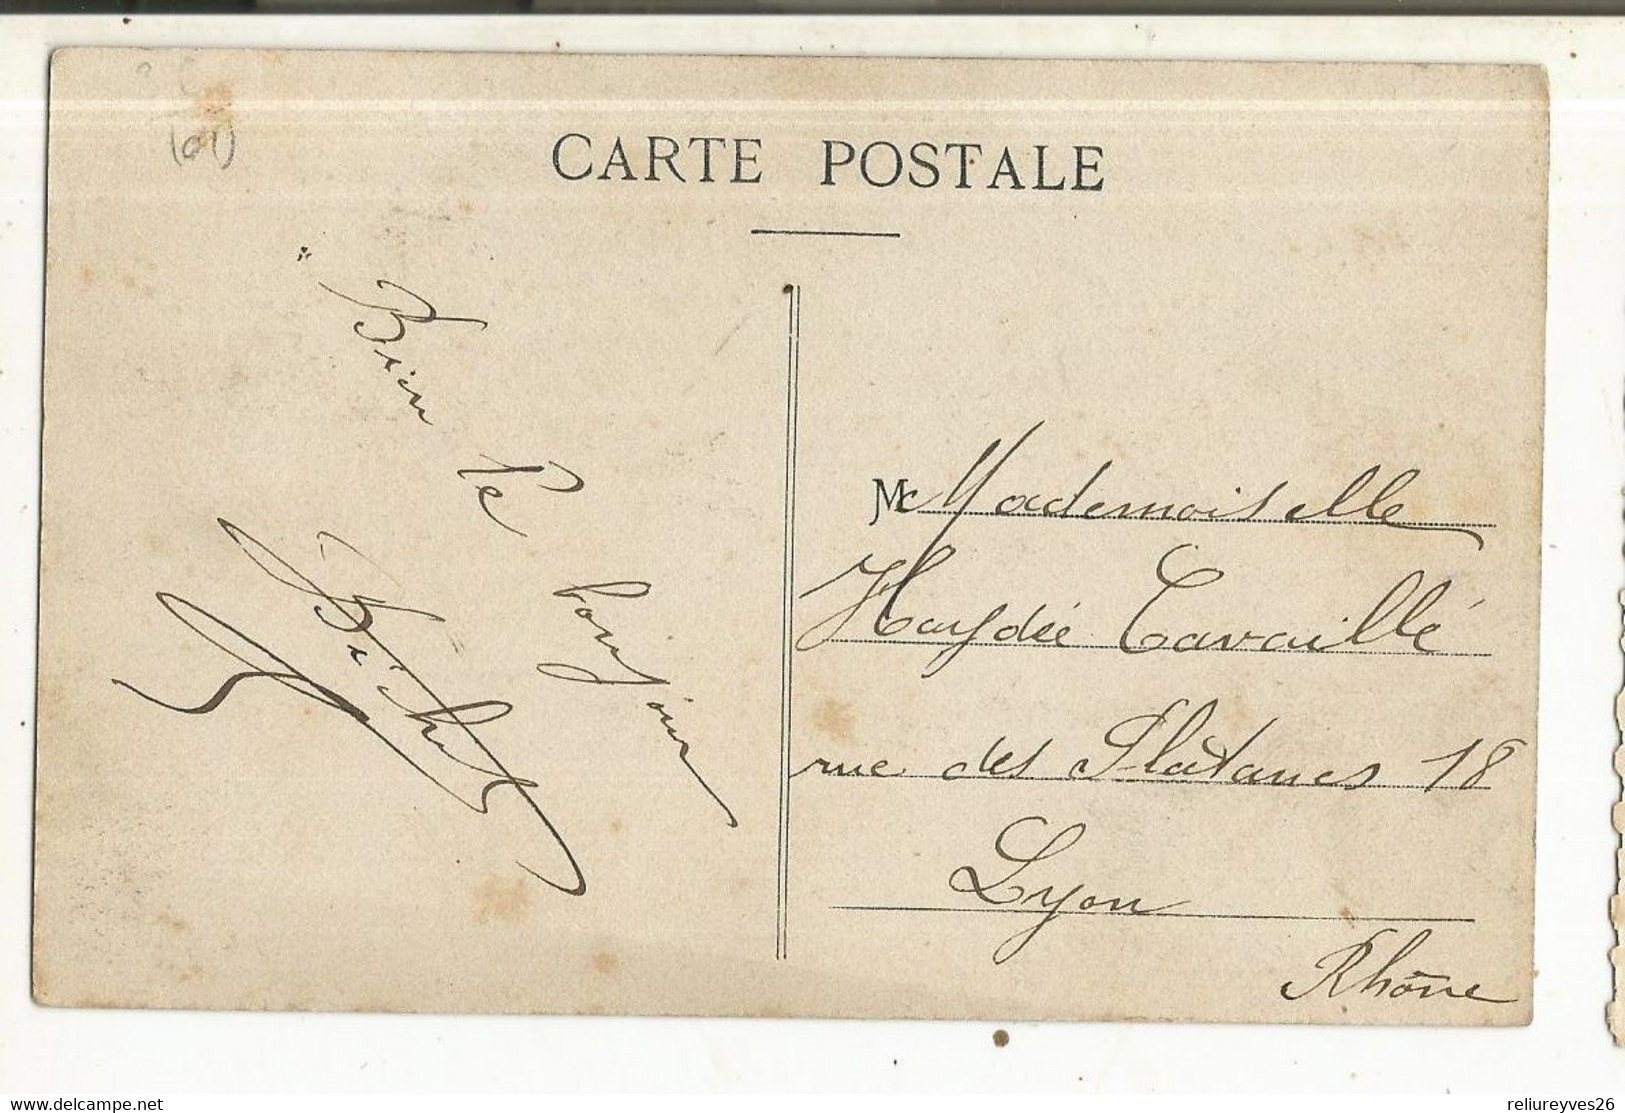 (01)
CARTE POSTALE
Bien le bonjour
M Mademoiselle
Haydée Cavaillé
rue des Platanes 18
Lyon
Rhône
www.delcampe.net
reliureyves26